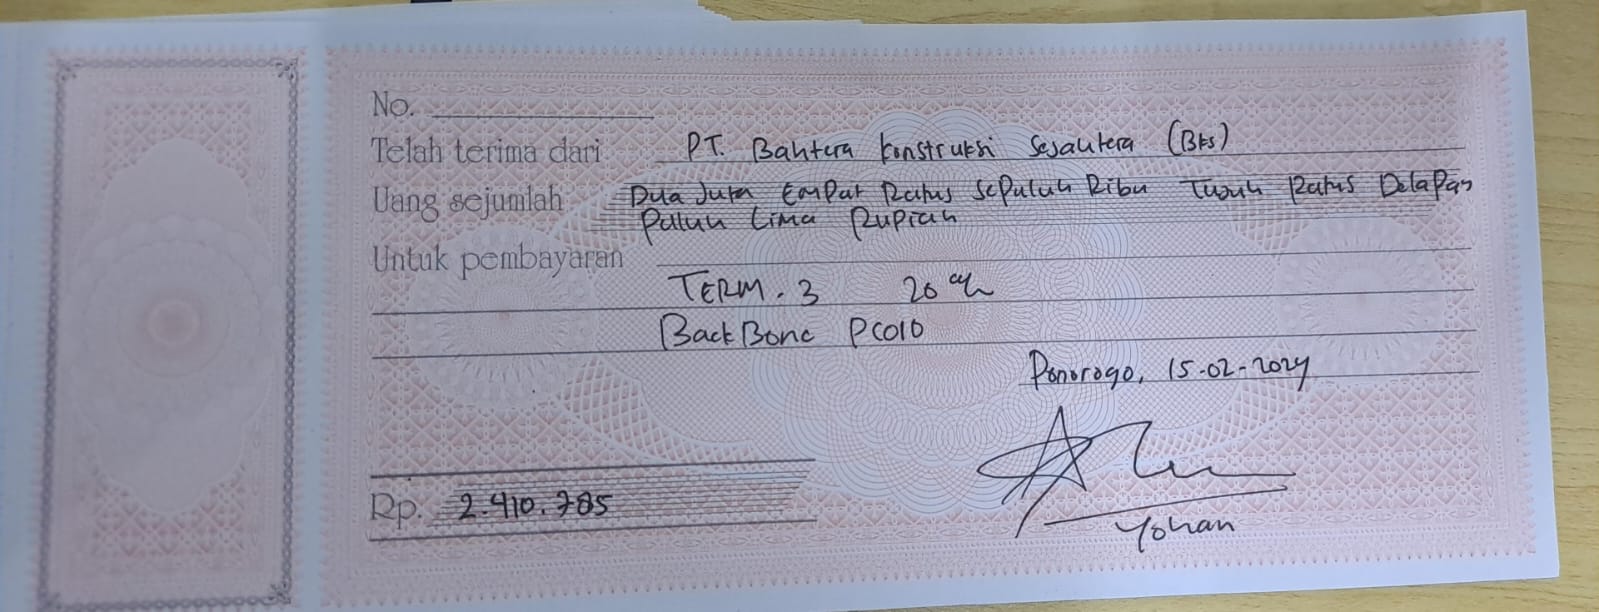 No.
Telah terima dari PT. Bahtera Konstruksi Sejahtera (Bks)
Uang sejumlah Dua Juta Empat Ratus Sepuluh Ribu Tujuh Ratus Delapan
Puluh Lima Rupiah
Untuk pembayaran
TERM. 3 20 %
BackBone PC010
Ponorogo, 15-02-2024
Rp. 2.410.785
Yohan